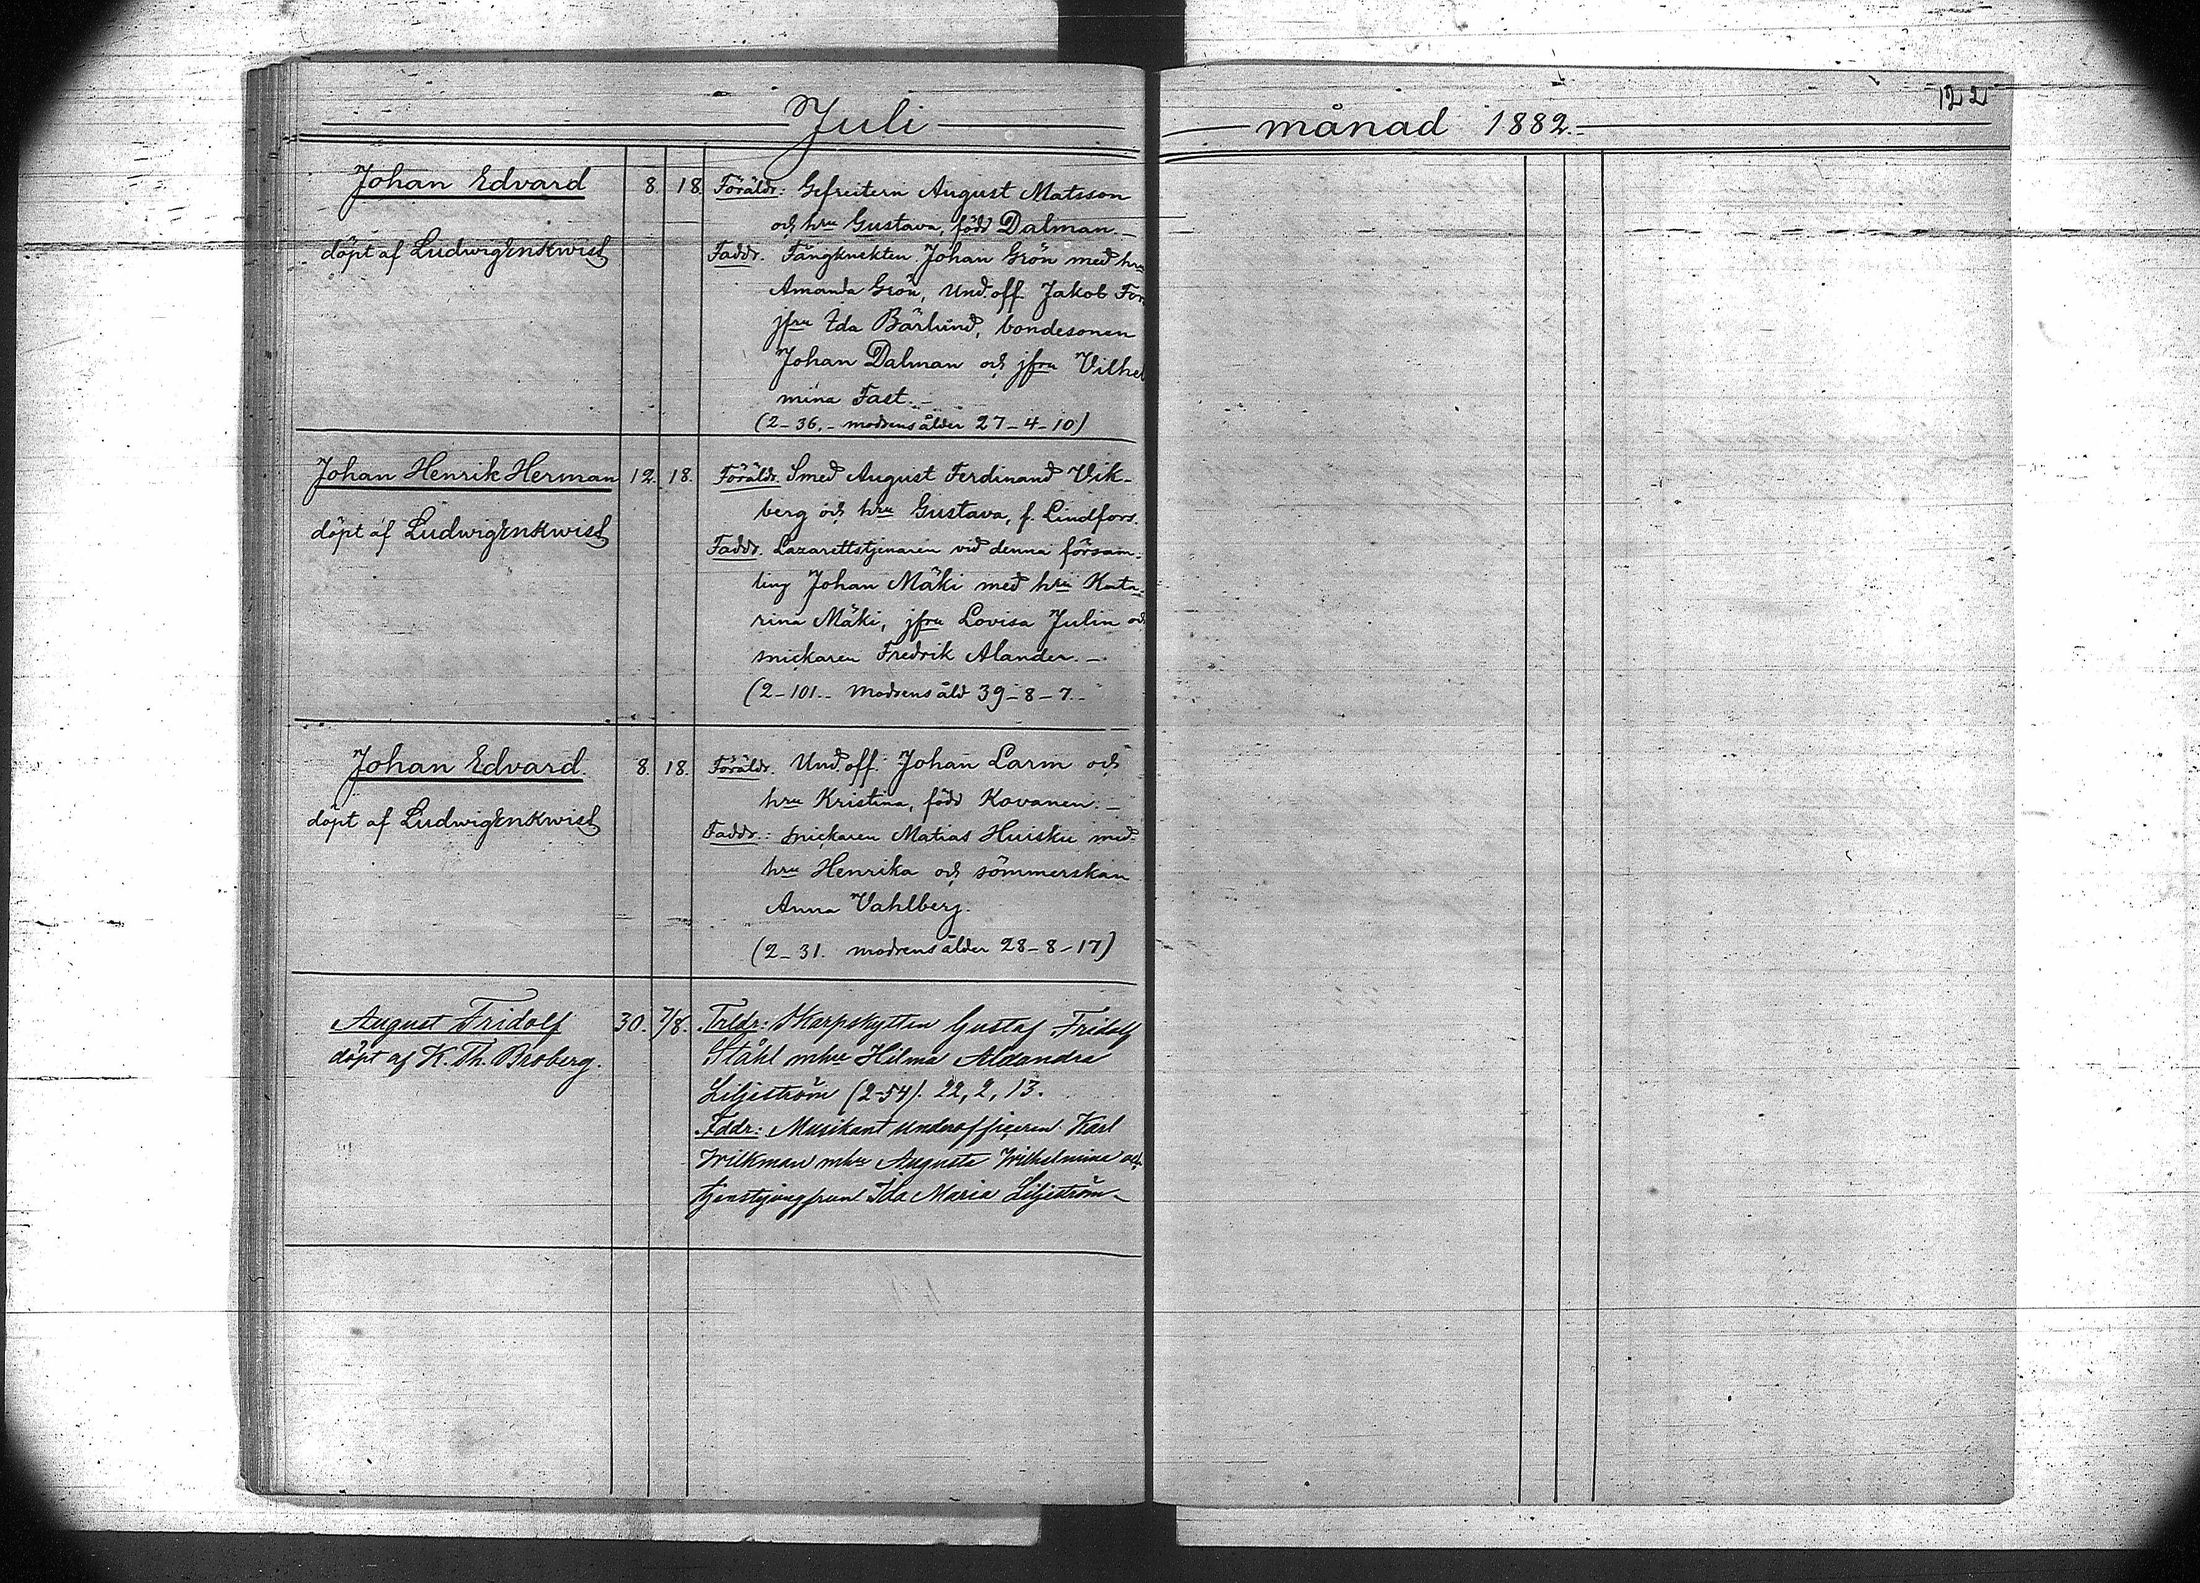 Juli
månad 1882.
122
Johan Edvard
8. 18.
döpt af Ludwig Enkwist
Föräldr: Gefreitern August Matsson
och hru Gustava, född Dalman. –
Faddr. Fångknekten Johan Grön med hru
Amanda Grön, Und.off. Jakob
jfru Ida Bärlund, bondesonen
Johan Dalman och jfru Vilhel
mina Fast. –
(2–36. – modrens ålder 27–4–10)
Johan Henrik Herman
12. 18.
döpt af Ludwig Enkwist
Föräldr. Smed August Ferdinand Vik-
berg och hru Gustava, f. Lindfors.
Faddr. Lazarettstjenaren vid denna försam-
ling Johan Mäki med hru Kata-
rina Mäki, jfru Lovisa Julin och
snickaren Fredrik Alander. –
(2–101. – modrens åld 39–8–7. –
Johan Edvard.
8. 18.
döpt af Ludwig Enkwist
Föräldr. Und.off. Johan Larm och
hru Kristina, född Kovanen. –
Faddr.: snickaren Matias Huisku med
hru Henrika och sömmerskan
Anna Vahlberg.
(2–31. modrens ålder 28–8–17)
August Fridolf
30. 7/8.
döpt af K. Th. Broberg.
Frldr: Skarpskytten Gustaf Fridolf
Ståhl mhu Hilma Alexandra
Liljeström (2-54). 22, 2, 13.
Fddr: Musikant underofficeren Karl
Wilkman mhu Augusta Wilhelmina och
tjenstejungfrun Ida Maria Liljeström